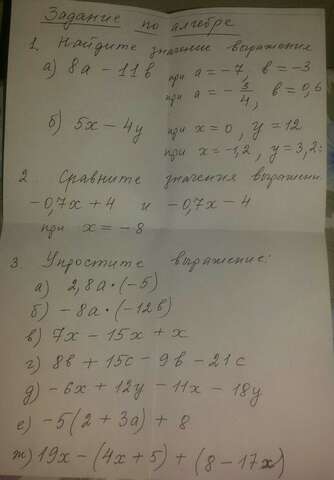 Задание по алгебре
1. Найдите значение выражения
а) 8а - 11в при а = -7, в = -3
при а = - 3/4, в = 0,6
б) 5х - 4у при х = 0, у = 12
при х = -1,2, у = 3,2
2. Сравните значения выражени
-0,7х + 4 и -0,7х - 4
при х = -8
3. Упростите выражение:
а) 2,8а · (-5)
б) -8а · (-12в)
в) 7х - 15х + х
г) 8в + 15с - 9в - 21с
д) -6х + 12у - 11х - 18у
е) -5(2 + 3а) + 8
ж) 19х - (4х + 5) + (8 - 17х)